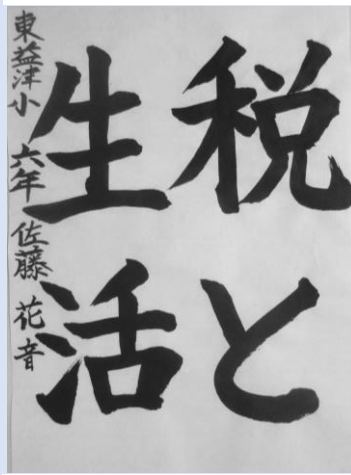 税と
生活
東益津小 六年 佐藤 花音